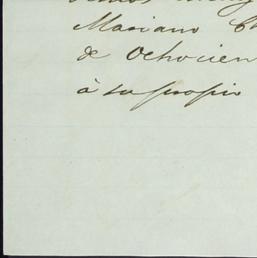 Mariano
de Ochocien
á su propio